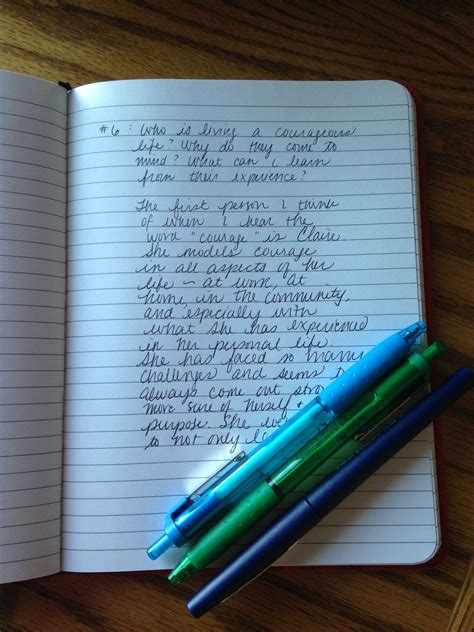 #6: Who is living a courageous
life? Why do they come to
mind? What can i learn
from their experience?
The first person I think
of when I hear the
word "courage" is Claire.
She models courage
in all aspects of her
life – at work, at
home, in the community,
and especially with
what she has experienced
in her personal life.
She has faced so many
challenges and seems
always come out
more sure of herself +
purpose. She
to not only